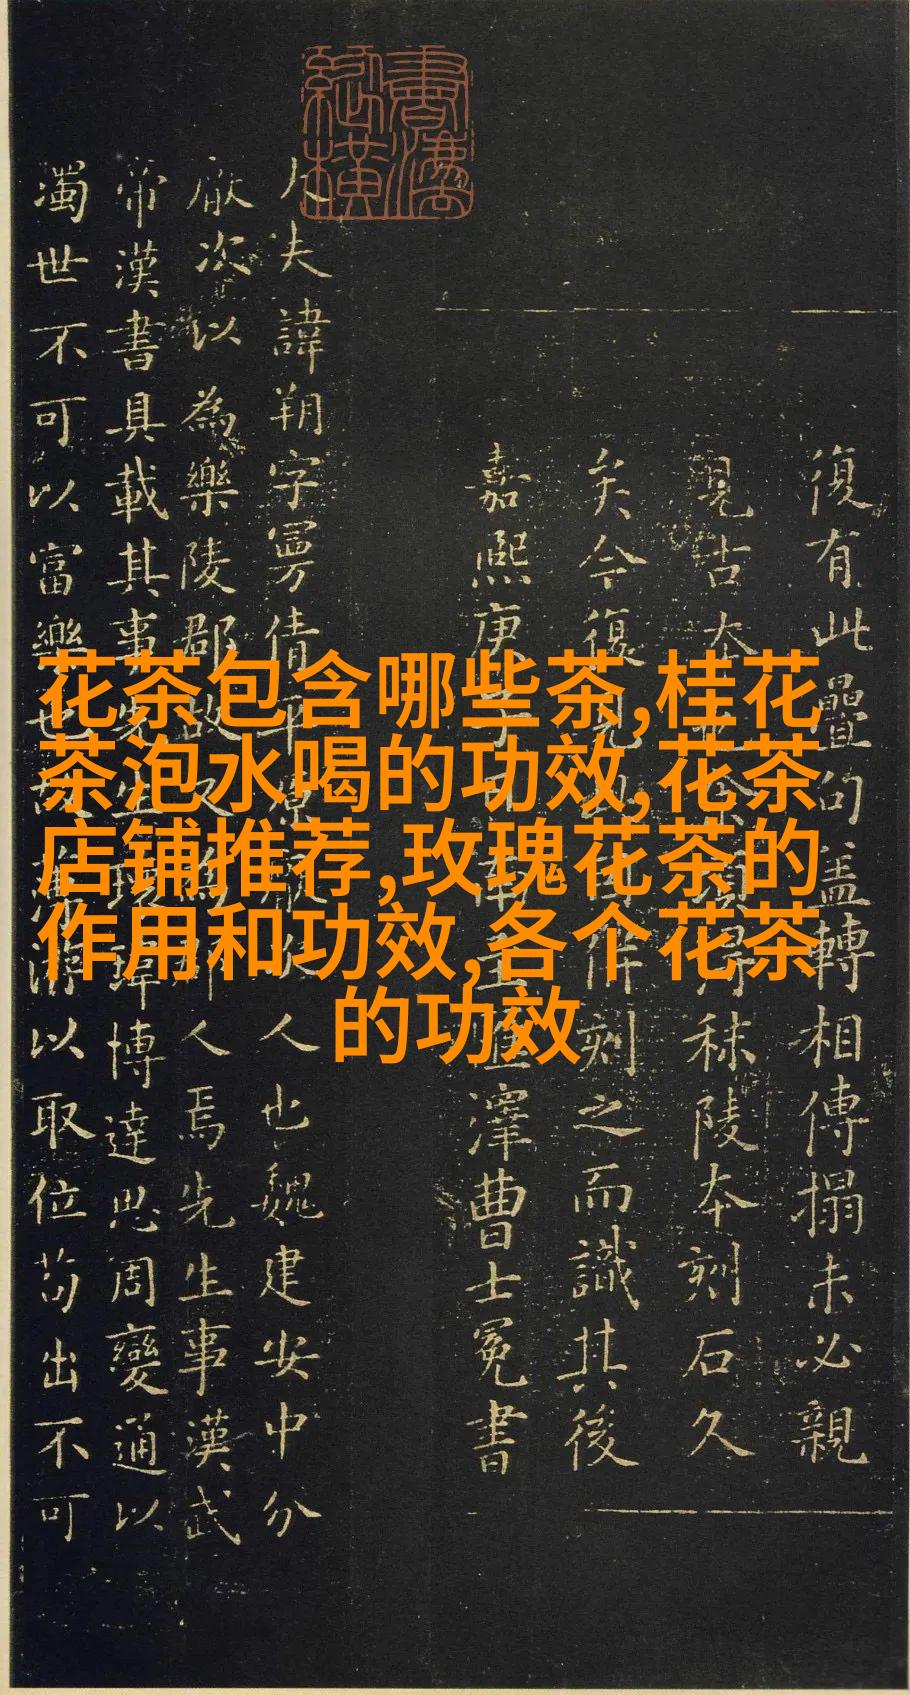 花茶包含哪些茶,桂花
茶泡水喝的功效,花茶
店铺推荐,玫瑰花茶的
作用和功效,各个花茶
的功效
復有此疊句蓋轉相傳搨未必親
見古本余秣陵本刻石久
矣今復見刻之而識其後
嘉熙庚子澤曹士冕書
大夫諱朔字曼倩平原厭次人也魏建安中分
厭次以為樂陵郡故又為郡人焉先生事漢武
帝漢書具載其事先生瓌瑋博達思周變通以
濁世不可以富樂也故薄游以取位苟出不可